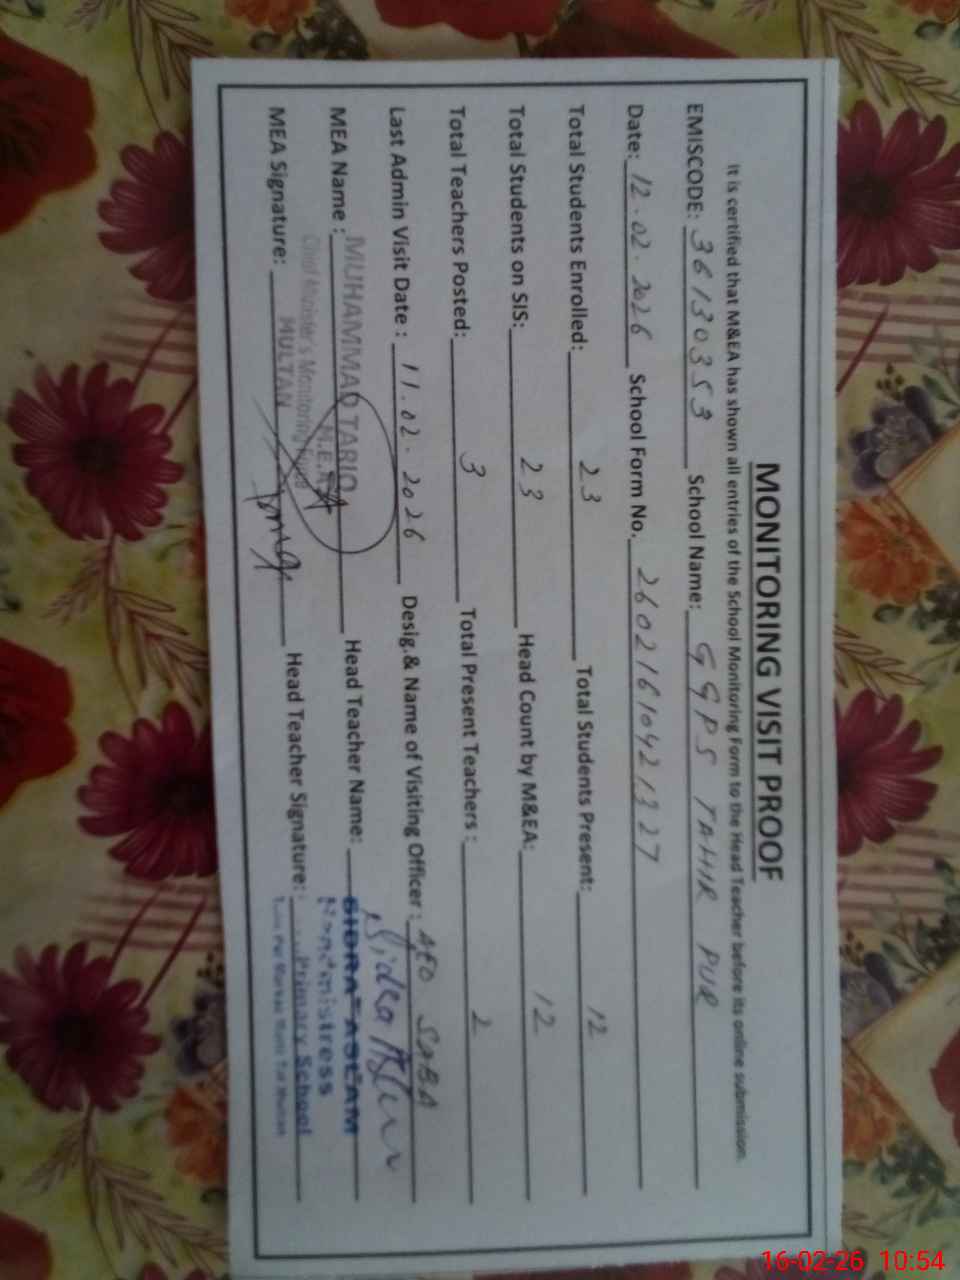 MONITORING VISIT PROOF
It is certified that M&EA has shown all entries of the School Monitoring Form to the Head Teacher before its online submission.
EMISCODE: 36130353 School Name: GGPS TAHIR PUR
Date: 12.02.2026 School Form No. 26021610421327
Total Students Enrolled: 23 Total Students Present: 12
Total Students on SIS: 23 Head Count by M&EA: 12
Total Teachers Posted: 3 Total Present Teachers: 2
Last Admin Visit Date: 11.02.2026 Desig.& Name of Visiting Officer: AEO SABA
MEA Name: MUHAMMAD TARIQ Head Teacher Name: SIDRA ASLAM
M.E.A
Chief Minister's Monitoring Force
MULTAN
MEA Signature: Head Teacher Signature: Sidra Aslam
Headmistress
Primary School
16-02-26 10:54